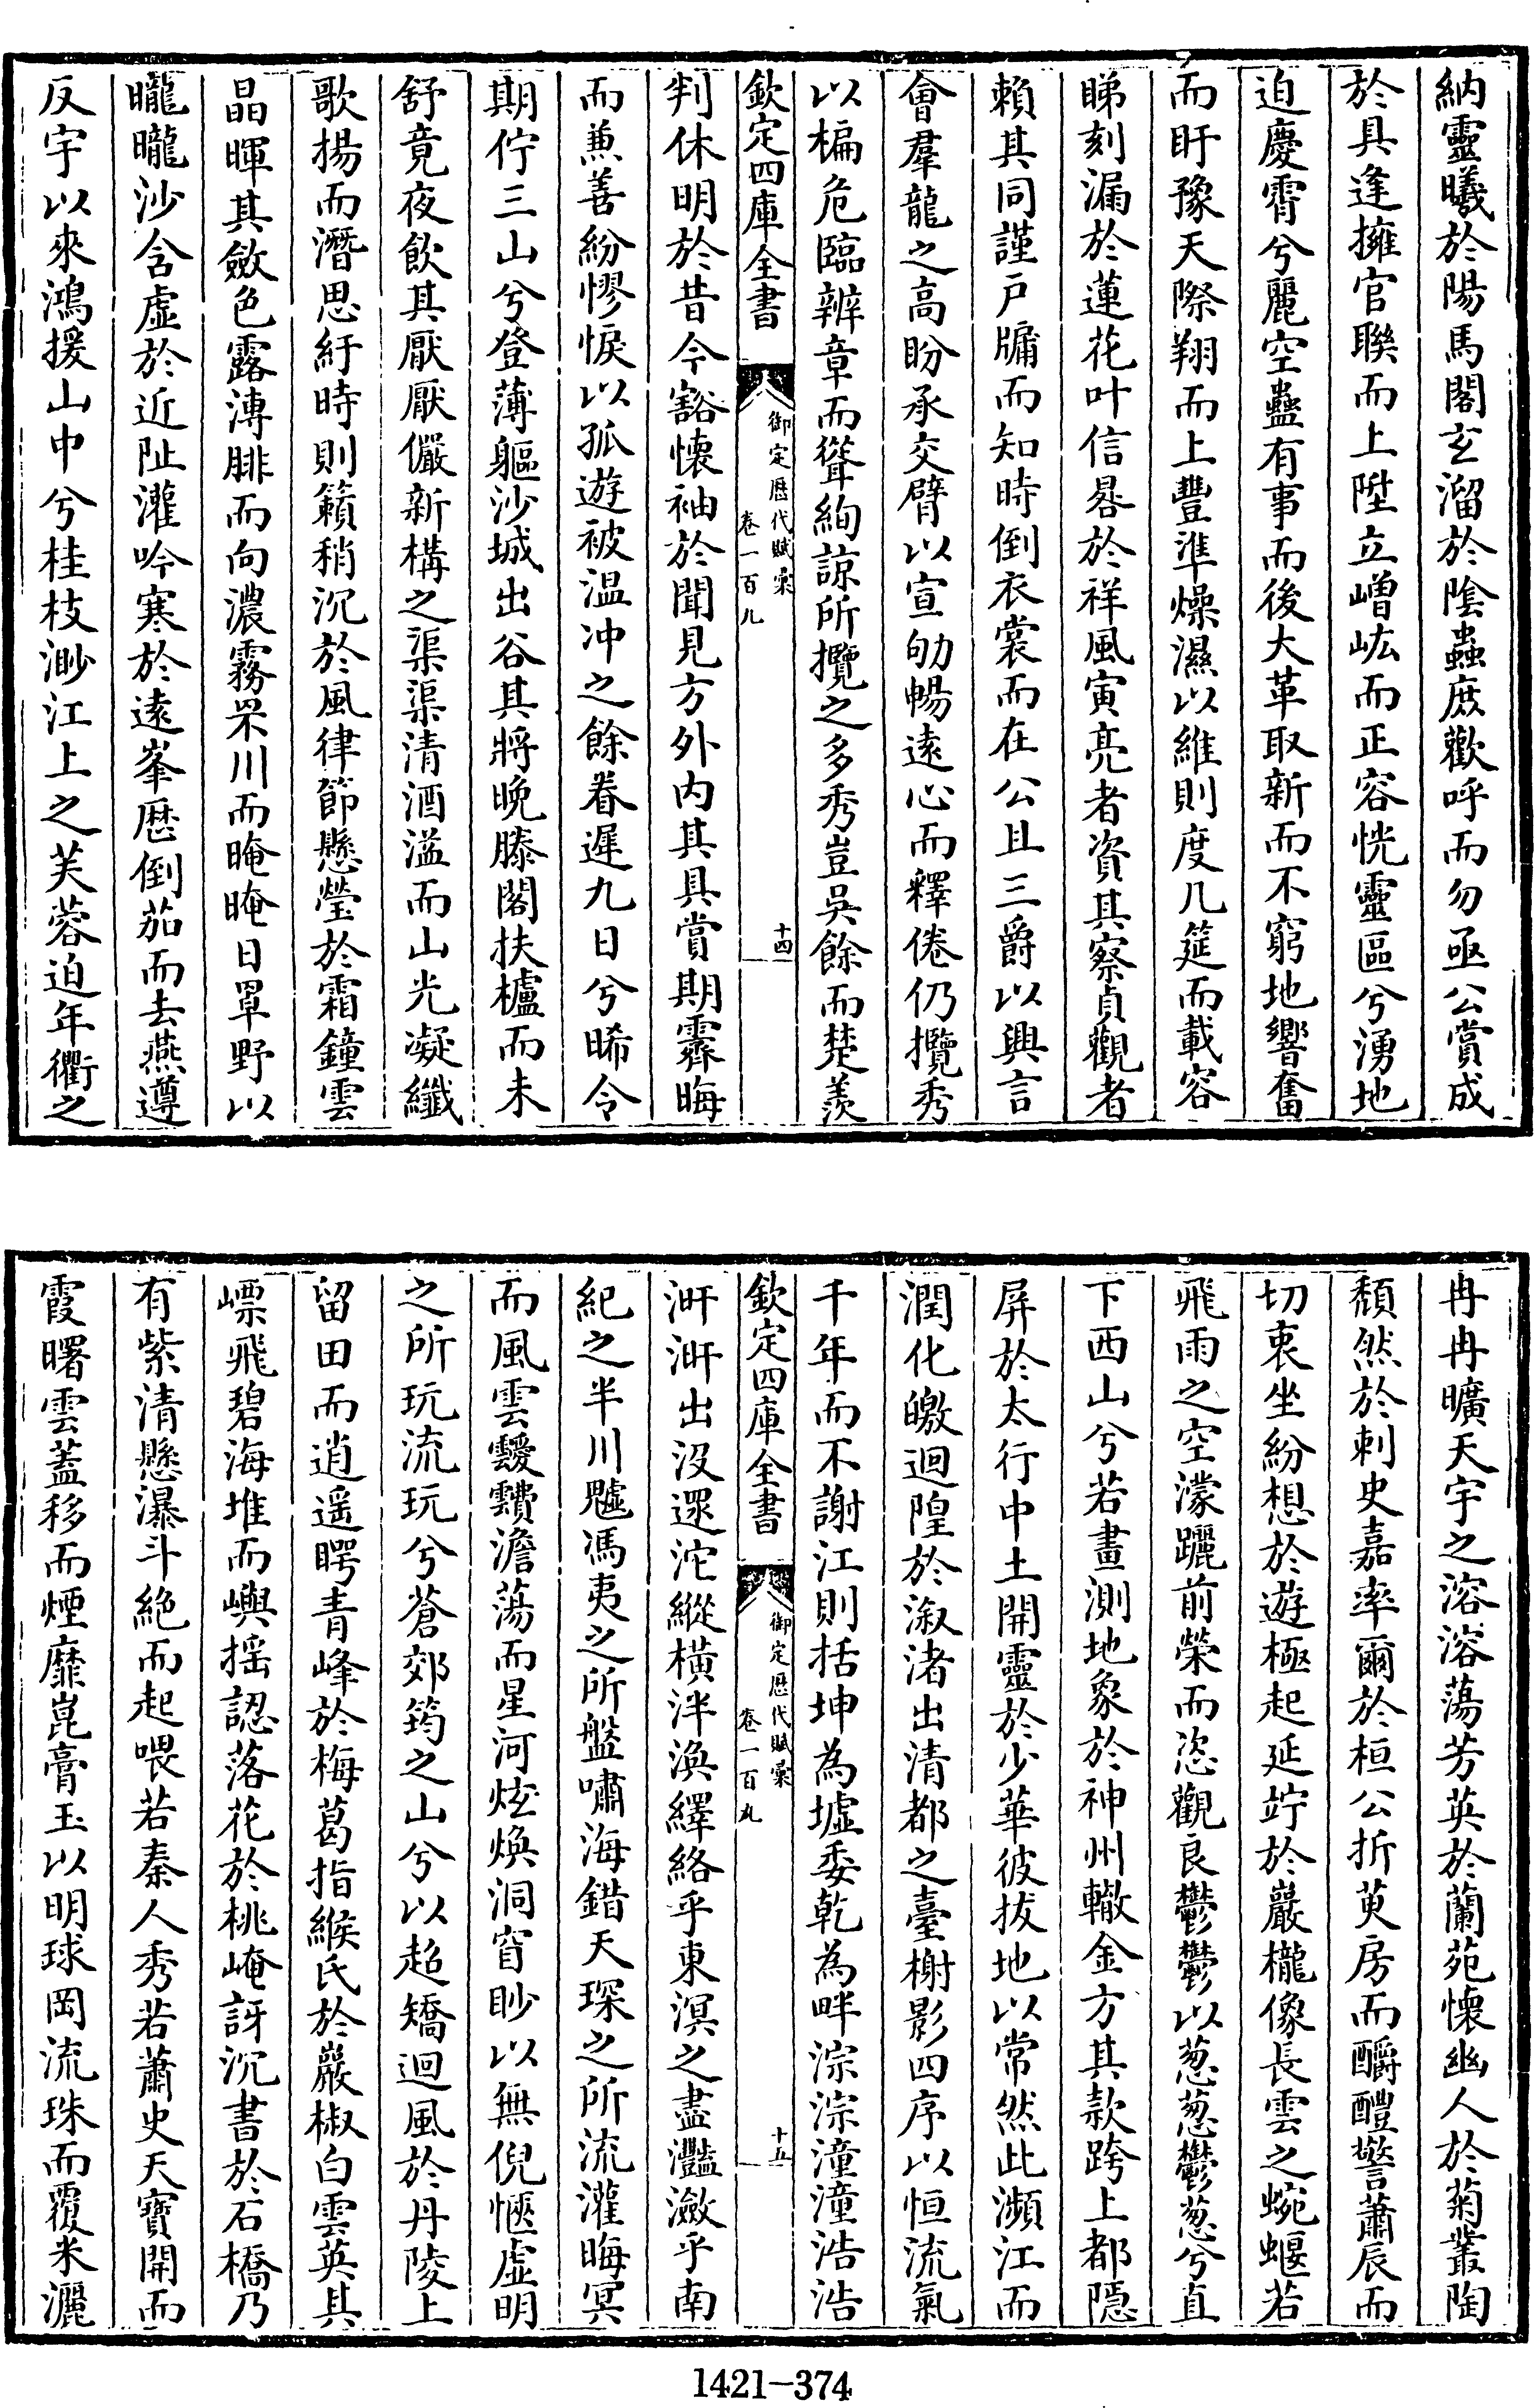 納靈曦於陽馬閣玄溜於陰蟲庶歡呼而勿亟公賞成
於具逢擁官聯而上陞立嶒岤而正容恍靈區兮湧地
迫慶霄兮麗空蠱有事而後大革取新而不窮地響奮
而盱豫天際翔而上豐準燥濕以維則度几筵而載容
睇刻漏於蓮花叶信晷於祥風寅亮者資其察貞觀者
賴其同謹戶牖而知時倒衣裳而在公且三爵以興言
會羣龍之高盼承交臂以宣劬暢遠心而釋倦仍攬秀
以楄危臨辨章而聳絢諒所攬之多秀豈吳餘而楚羨
欽定四庫全書
御定歷代賦彙
卷一百九
十四
判休明於昔今豁懷袖於聞見方外內其具賞期霽晦
而兼善紛憀悷以孤遊被溫沖之餘眷遲九日兮晞令
期佇三山兮登薄軀沙城出谷其將晚滕閣扶櫨而未
舒竟夜飲其厭厭儼新構之渠渠清酒溢而山光凝纖
歌揚而潛思紆時則籟稍沉於風律節懸瑩於霜鐘雲
晶暉其斂色露漙腓而向濃霧罘川而晻晻日罩野以
曨曨沙含虛於近阯灌吟寒於遠峯歷倒茄而去燕遵
反宇以來鴻援山中兮桂枝渺江上之芙蓉迫年衢之
冉冉曠天宇之溶溶蕩芳英於蘭苑懷幽人於菊叢陶
頹然於刺史嘉率爾於桓公折萸房而釂醴警蕭辰而
切衷坐紛想於遊極起延竚於巖櫳像長雲之蜿蝘若
飛雨之空濛躧前榮而恣觀良鬱鬱以葱葱鬱葱兮直
下西山兮若畫測地象於神州轍金方其款跨上都隱
屏於太行中土開靈於少華彼拔地以常然此瀕江而
潤化皦迴隍於溆渚出清都之臺榭影四序以恒流氣
千年而不謝江則括坤為墟委乾為畔淙淙潼潼浩浩
欽定四庫全書
御定歷代賦彙
卷一百九
十五
汧汧出沒還沱縱橫泮渙繹絡乎東溟之盡灩瀲乎南
紀之半川魖馮夷之所盤嘯海錯天琛之所流灌晦冥
而風雲靉靅澹蕩而星河炫煥洞窅眇以無倪愜虛明
之所玩流玩兮蒼郊筠之山兮以超矯迴風於丹陵上
留田而逍遙睜青峰於梅葛指緱氏於巖椒白雲英其
嶫飛碧海堆而嶼搖認落花於桃崦訝沉書於石橋乃
有紫清懸瀑斗絕而起喂若秦人秀若蕭史天寶開而
霞曙雲蓋移而煙靡崑膏玉以明球岡流珠而覆米灑
1421-374